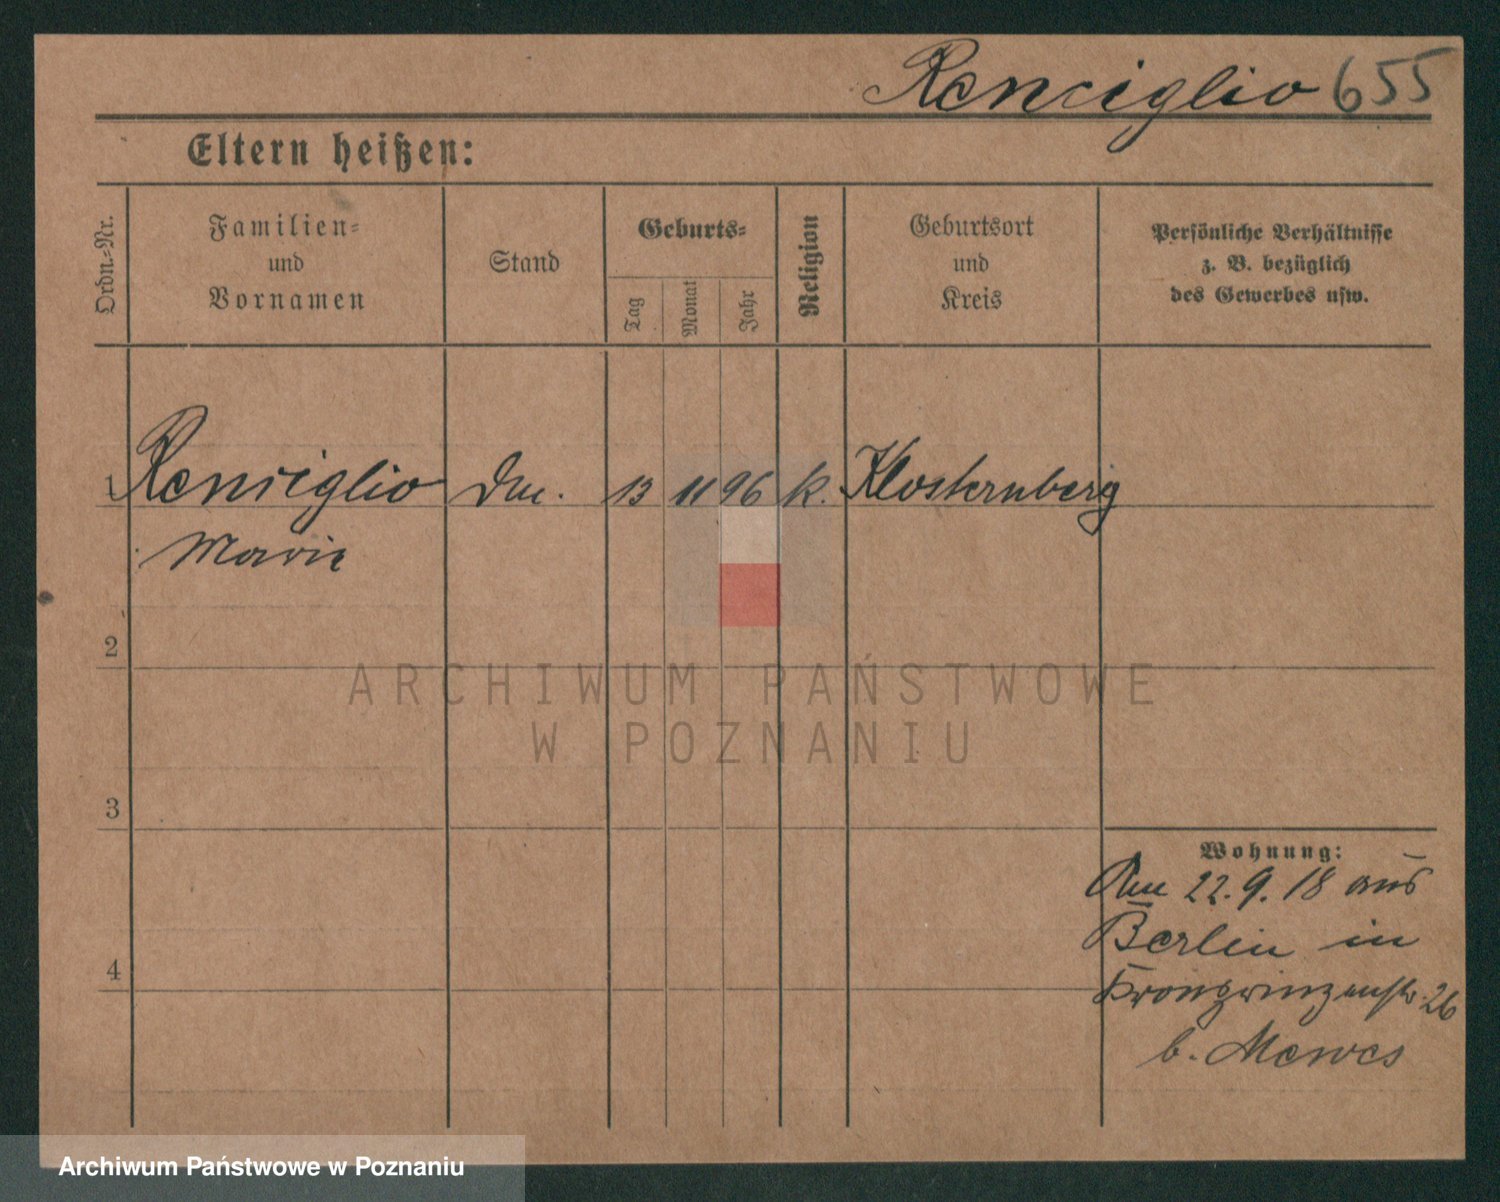 Renciglio 655
Eltern heißen:
Ordn.-Nr.
Familien-
und
Vornamen
Stand
Geburts-
Tag
Monat
Jahr
Religion
Geburtsort
und
Kreis
Persönliche Verhältnisse
z. B. bezüglich
des Gewerbes usw.
1 Renciglio 13 11 96 k. Klosternberg
Marie
2
ARCHIWUM PAŃSTWOWE
W POZNANIU
3
Wohnung:
Am 22.9.18 aus
Berlin in
4
Kronprinzenstr. 26
b. Mewes
Archiwum Państwowe w Poznaniu